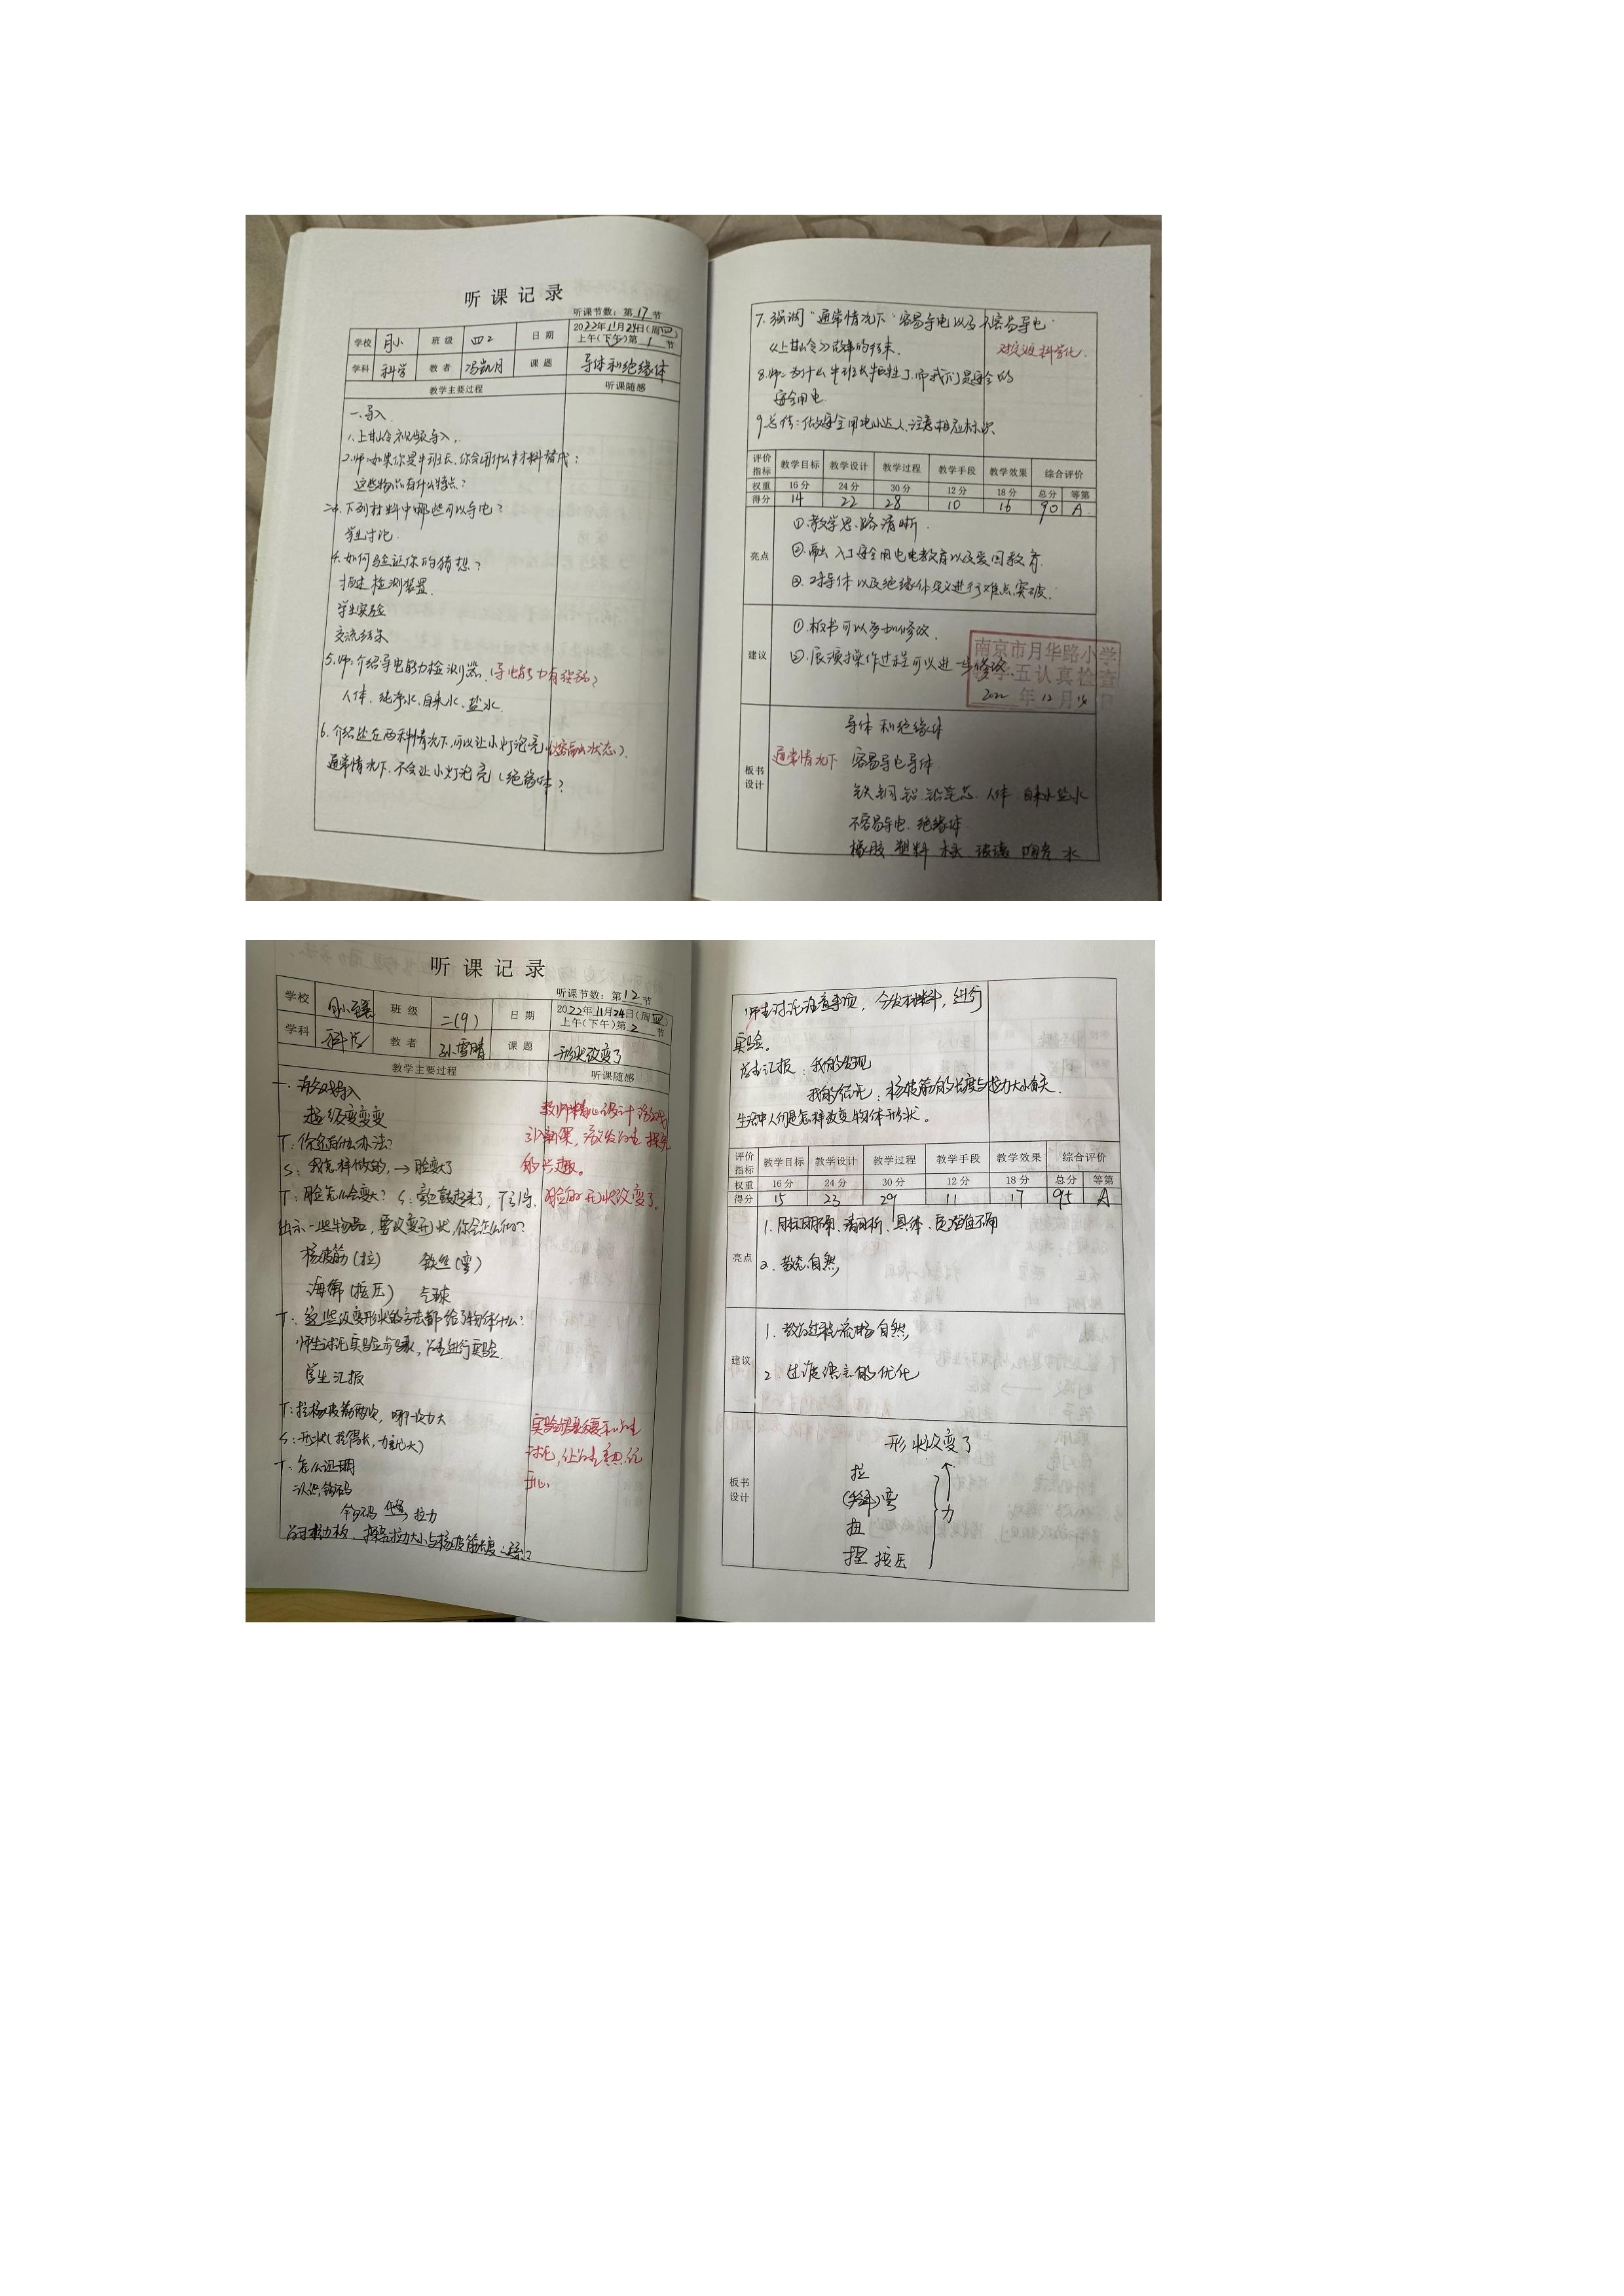 听课记录
听课节数：第17节
学校 月小 班级 四2 日期 2022年11月24日(周四)
上午(下午)第1节
学科 科学 教者 冯凯月 课题 导体和绝缘体
教学主要过程 听课随感
一.导入
1.上甘岭视频导入.
2.师:如果你是牛班长,你会用什么材料替代:
这些物品有什么特点?
下列材料中哪些可以导电?
学生讨论.
4.如何验证你的猜想?
搭建检测装置.
学生实验
交流结果
5.师:介绍导电能力检测器.(导电能力有强弱)
人体、纯净水、自来水、盐水.
6.介绍还在两种情况下,可以让小灯泡亮
通常情况下,不会让小灯泡亮(绝缘体)
7.强调"通常情况下"容易导电以及不容易导电
《上甘岭》故事的结束. 对定义科学化.
8.师:为什么牛班长牺牲了,而我们是安全的
安全用电
9.总结:做安全用电小达人,注意相应标识
评价指标 教学目标 教学设计 教学过程 教学手段 教学效果 综合评价
权重 16分 24分 30分 12分 18分 总分 等第
得分 14 22 28 10 16 90 A
亮点
①教学思路清晰.
②融入了安全用电教育以及爱国教育.
③对导体以及绝缘体定义进行了难点突破.
建议
①板书可以多加修改.
②展演操作过程可以进一步修改.
南京市月华路小学
教学五认真检查
2022年12月14日
板书设计
导体和绝缘体
通常情况下 容易导电导体
铁 铜 铝 铅笔芯 人体 自来水 盐水
不容易导电 绝缘体
橡胶 塑料 木头 玻璃 陶瓷 水
听课记录
听课节数：第12节
学校 月小 班级 二(9) 日期 2022年11月24日(周四)
上午(下午)第2节
学科 科学 教者 孙雪晴 课题 形状改变了
教学主要过程 听课随感
一.游戏导入
超级变变变
教师精心设计游戏
引新课,激发学生探究
的兴趣。
T:你是用什么办法?
S:我怎样做的,→脸变大了
T:脸怎么会变大? S:旁边鼓起来了,T引导:脸的形状改变了。
出示一些物品,要改变形状,你会怎么做?
橡皮筋(拉) 铁丝(弯)
海绵(按压) 气球
T:这些改变形状的方法都给了物体什么?
师生讨论实验步骤,学生进行实验.
学生汇报
T:拉橡皮筋两次,哪一次力大
S:形状(拉得长,力就大)
T:怎么证明
认识钩码
钩码 代替 拉力
探究拉力大小与橡皮筋长度
师生讨论注意事项,分发材料,进行
实验。
学生汇报:我的发现
我的结论:橡皮筋的长度与拉力大小有关.
生活中人们是怎样改变物体形状。
评价指标 教学目标 教学设计 教学过程 教学手段 教学效果 综合评价
权重 16分 24分 30分 12分 18分 总分 等第
得分 15 23 29 11 17 95 A
亮点
1.目标明确、清晰、具体、定位准确
2.教态自然,
建议
1.教学过程流畅自然,
2.过渡语言的优化
板书设计
形状改变了
拉
弯
扭 力
捏 按压